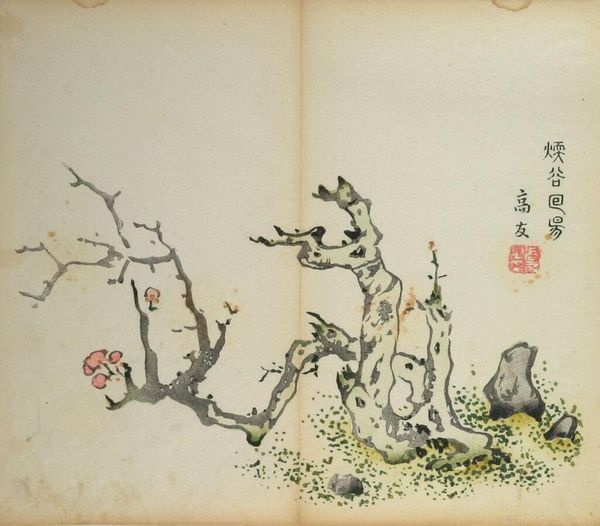 煗谷回昜
高友